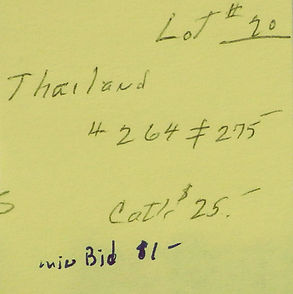 Lot # 20
Thailand
# 264 & 275
Cat: $ 25.-
min Bid $1-